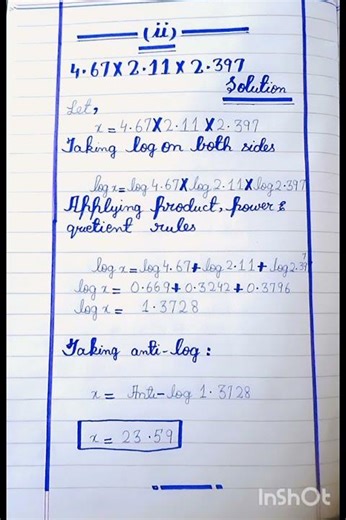 (ii)
4.67X2.11 X 2.397
Solution
Let,
x = 4.67X2.11 X2.397
Taking log on both sides
log x = log 4.67X log 2.11X log 2.397
Applying product, power &
quetient rules
log x = log 4.67 + log 2.11 + log 2.397
log x = 0.669 + 0.3242 + 0.3796
log x = 1.3728
Taking anti-log :
x = Anti-log 1.3728
x = 23.59
InShOt